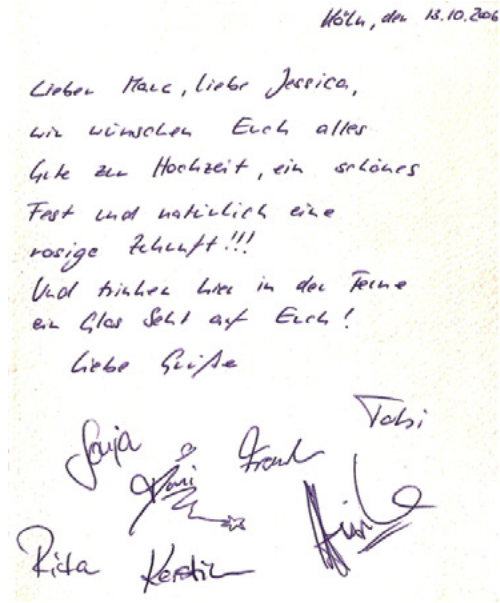 Köln, den 13.10.2006
Lieber Marc, liebe Jessica,
wir wünschen Euch alles
Gute zur Hochzeit, ein schönes
Fest und natürlich eine
rosige Zukunft!!!
Und trinken hier in der Ferne
ein Glas Sekt auf Euch!
Liebe Grüße
Tobi
Sonja Frank
Rita Kerstin